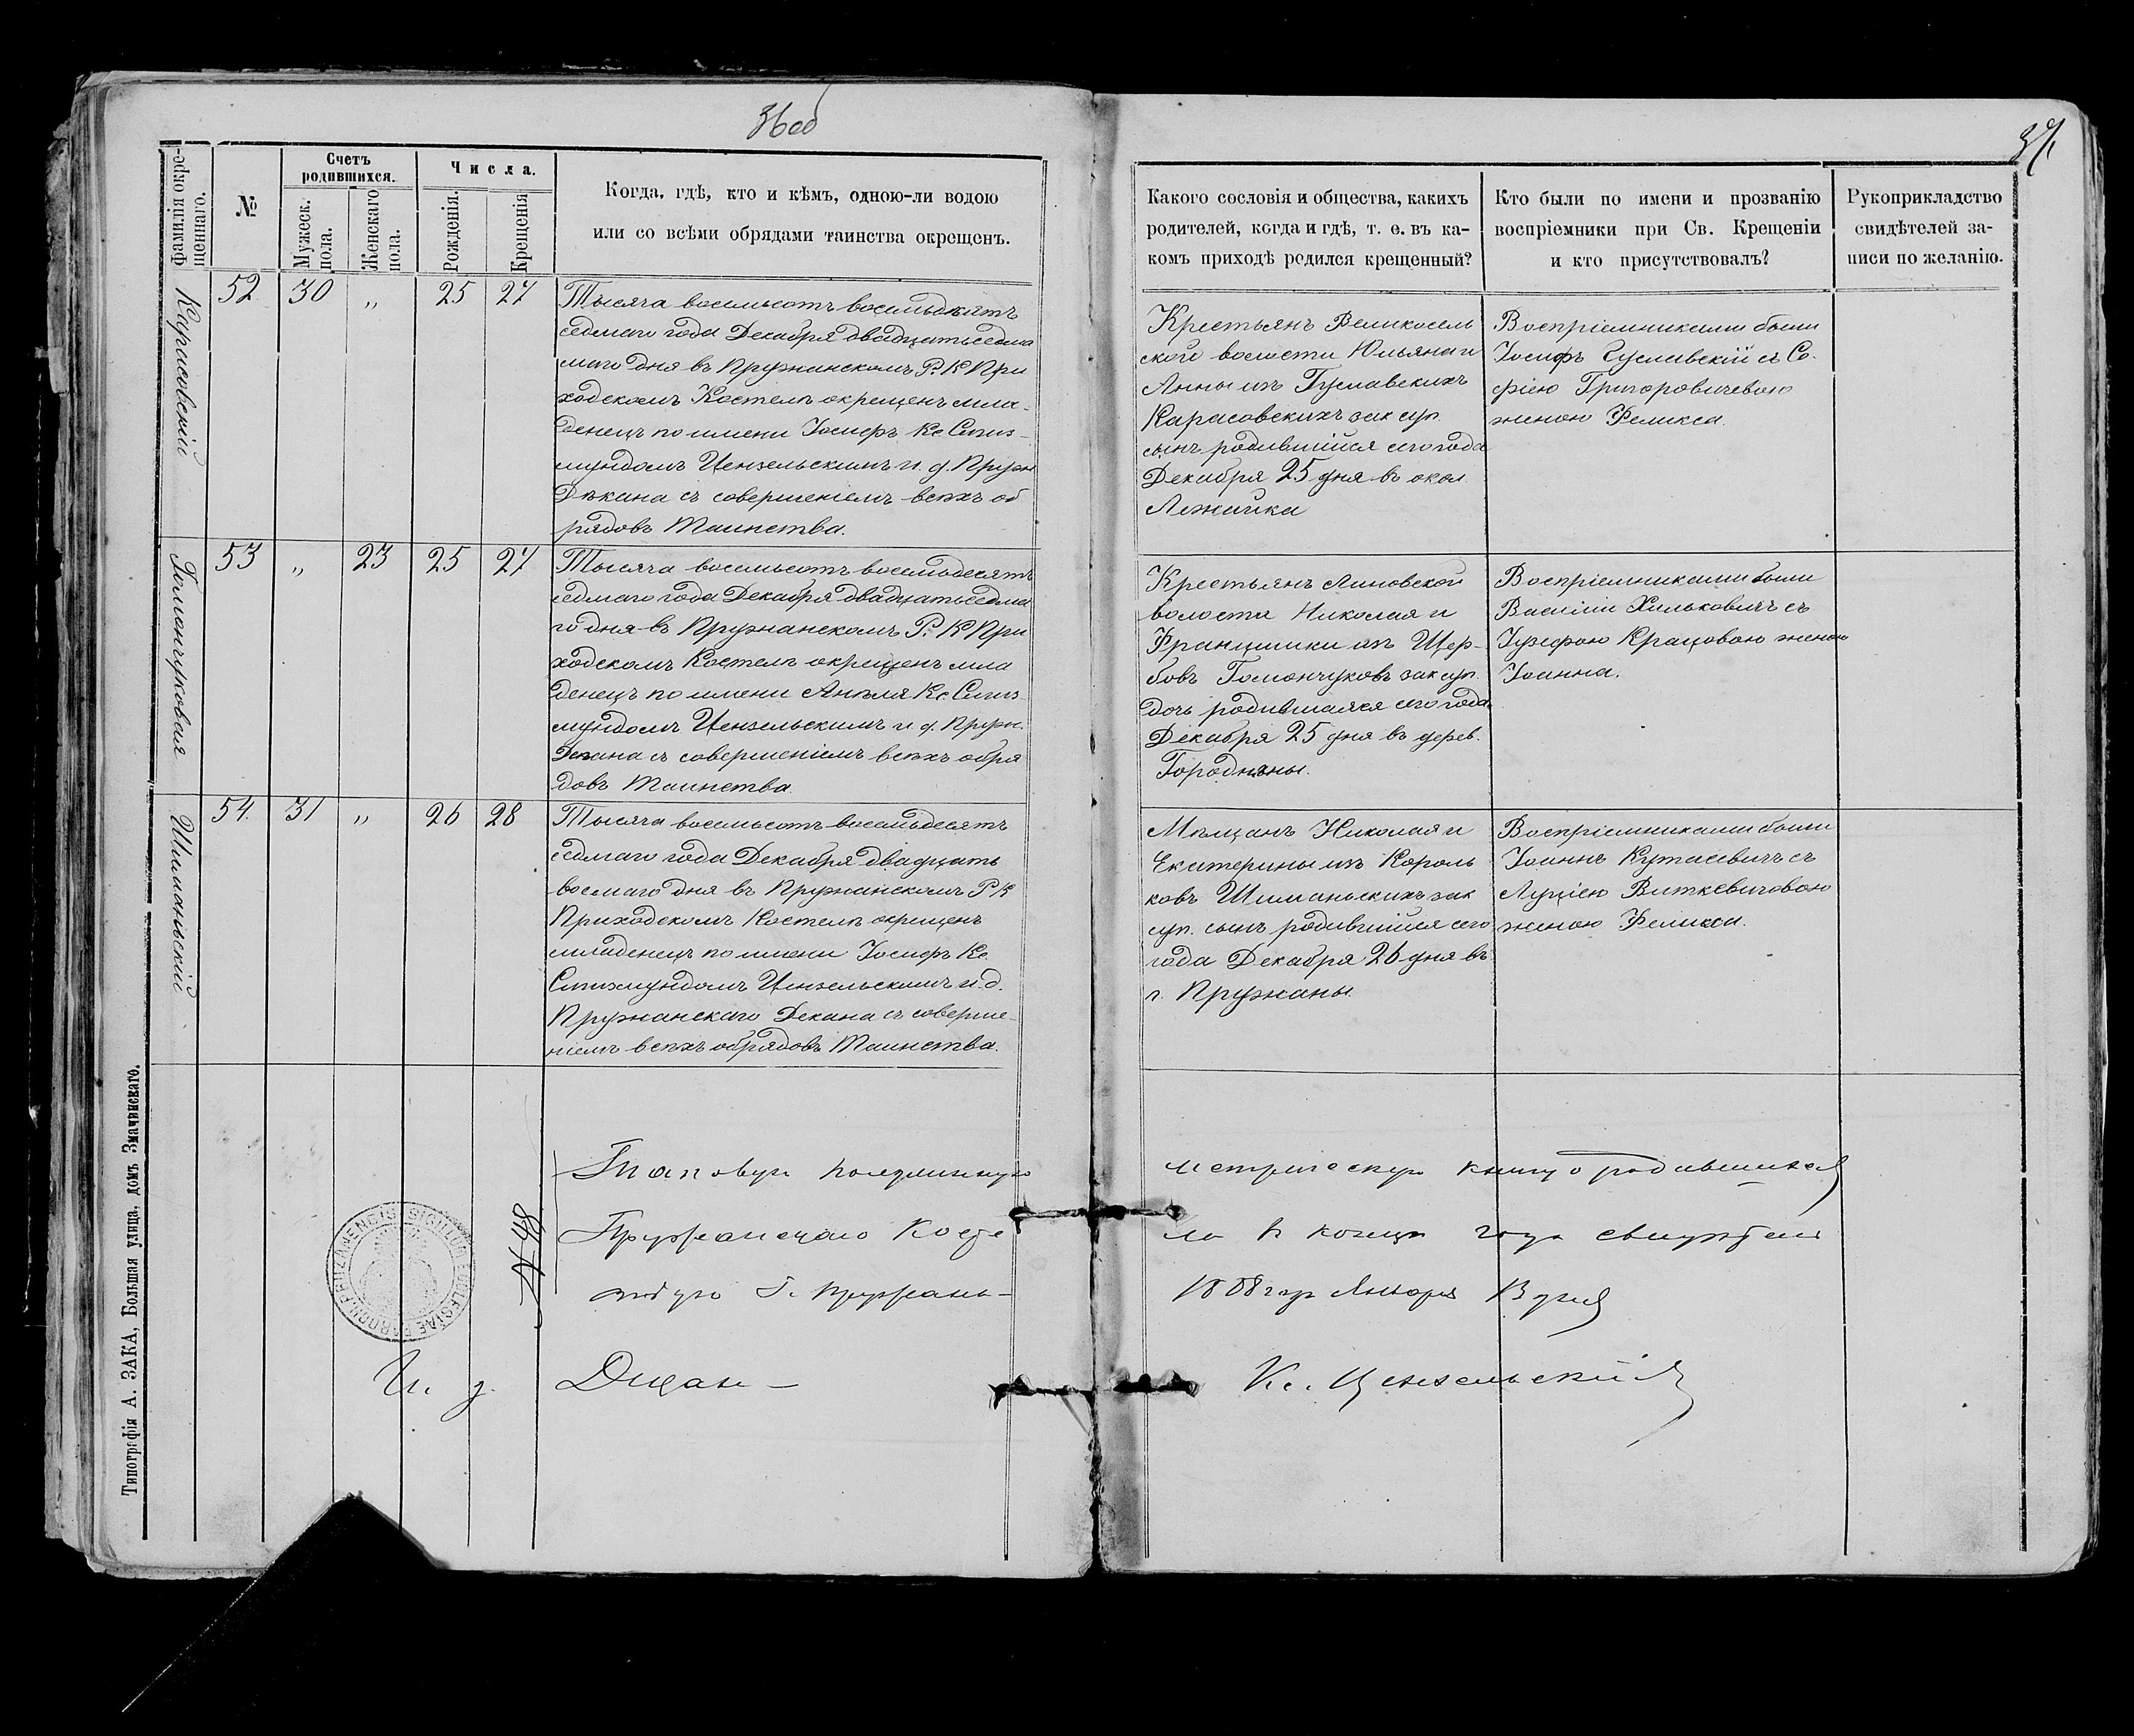 36 об
37
Фамилія окре-
щеннаго.
№
Счетъ
родившихся.
Мужеск.
пола.
Женскаго
пола.
Числа.
Рожденія.
Крещенія
Когда, гдѣ, кто и кѣмъ, одною-ли водою
или со всѣми обрядами таинства окрещенъ.
Какого сословія и общества, какихъ
родителей, когда и гдѣ, т. е. въ ка-
комъ приходѣ родился крещенный?
Кто были по имени и прозванію
воспріемники при Св. Крещеніи
и кто присутствовалъ?
Рукоприкладство
свидѣтелей за-
писи по желанію.
Карасовскій
52 30 „ 25 27
Тысяча восемьсотъ восемьдсятъ
седмаго года Декабря двадцатьседма
маго дня въ Пружанскомъ Р. К При
ходскомъ Костелѣ окрещенъ мла-
денецъ по имени Іосифъ Кс. Сигиз-
мундомъ Цензельскимъ и. д. Пруж
Декана съ совершеніемъ всѣхъ об
рядовъ Таинства.
Крестьянъ Великосель
ской волости Юльяна и
Анны изъ Гуславскихъ
Карасовскихъ зак суп.
сынъ родившійся сего года
Декабря 25 дня въ окол.
Лежайка
Воспріемниками были
Іосифъ Гуславскій съ Со-
фіею Григоровичевою
женою Феликса.
Гомончуковая
53 „ 23 25 27
Тысяча восемьсотъ восемьдесятъ
седмаго года Декабря двадцатьседма
го дня въ Пружанскомъ Р. К При
ходскомъ Костелѣ окрещенъ мла
денецъ по имени Анеля Кс. Сигиз-
мундомъ Цензельскимъ и. д. Пруж.
Декана съ совершеніемъ всѣхъ обря
довъ Таинства
Крестьянъ Линовской
волости Николая и
Францишки изъ Щер-
бовъ Гомончуковъ зак суп.
дочь родившаяся сего года
Декабря 25 дня въ дерев.
Городняны.
Воспріемниками были
Василій Хильковичъ съ
Іузефою Крацовою женою
Іоанна.
Шиманьскій
54. 31 „ 26 28
Тысяча восемьсотъ восемьдесятъ
седмаго года Декабря двадцать
восмаго дня въ Пружанскомъ Р К
Приходскомъ Костелѣ окрещенъ
младенецъ по имени Іосифъ Кс
Сигизмундомъ Цензельскимъ и. д.
Пружанскаго Декана съ соверше-
ніемъ всѣхъ обрядовъ Таинства.
Мѣщанъ Николая и
Екатерины изъ Король
ковъ Шиманьскихъ зак
суп. сынъ родившійся сего
года Декабря 26 дня въ
г. Пружаны.
Воспріемниками были
Іоаннъ Кутасевичъ съ
Луціею Виткевичовою
женою Феликса.
Таковую подлинную метрическую книгу о родившихся
Пружанскаго Косте ла въ концѣ года свидѣтель
ствую Г. Пружаны 1888 года Января 3 дня
И. д. Декан Кс. Цензельскій
№ 48
SIGILLUM ECCLESIAE PAROCH. PRUZANENSIS
Типографія А. ЗАКА, Большая улица, домъ Значинскаго.